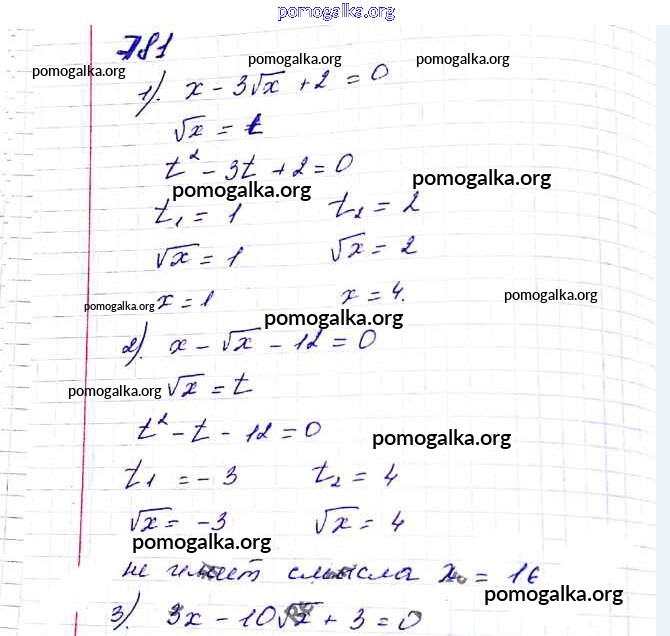 pomogalka.org
781
pomogalka.org
pomogalka.org
pomogalka.org
1). x - 3√x + 2 = 0
√x = t
t² - 3t + 2 = 0
pomogalka.org
pomogalka.org
t₁ = 1 t₂ = 2
√x = 1 √x = 2
pomogalka.org x = 1 x = 4. pomogalka.org
pomogalka.org
2). x - √x - 12 = 0
pomogalka.org √x = t
t² - t - 12 = 0
pomogalka.org
t₁ = -3 t₂ = 4
√x = -3 √x = 4
pomogalka.org
не имеет смысла x = 16
pomogalka.org
3). 3x - 10√x + 3 = 0